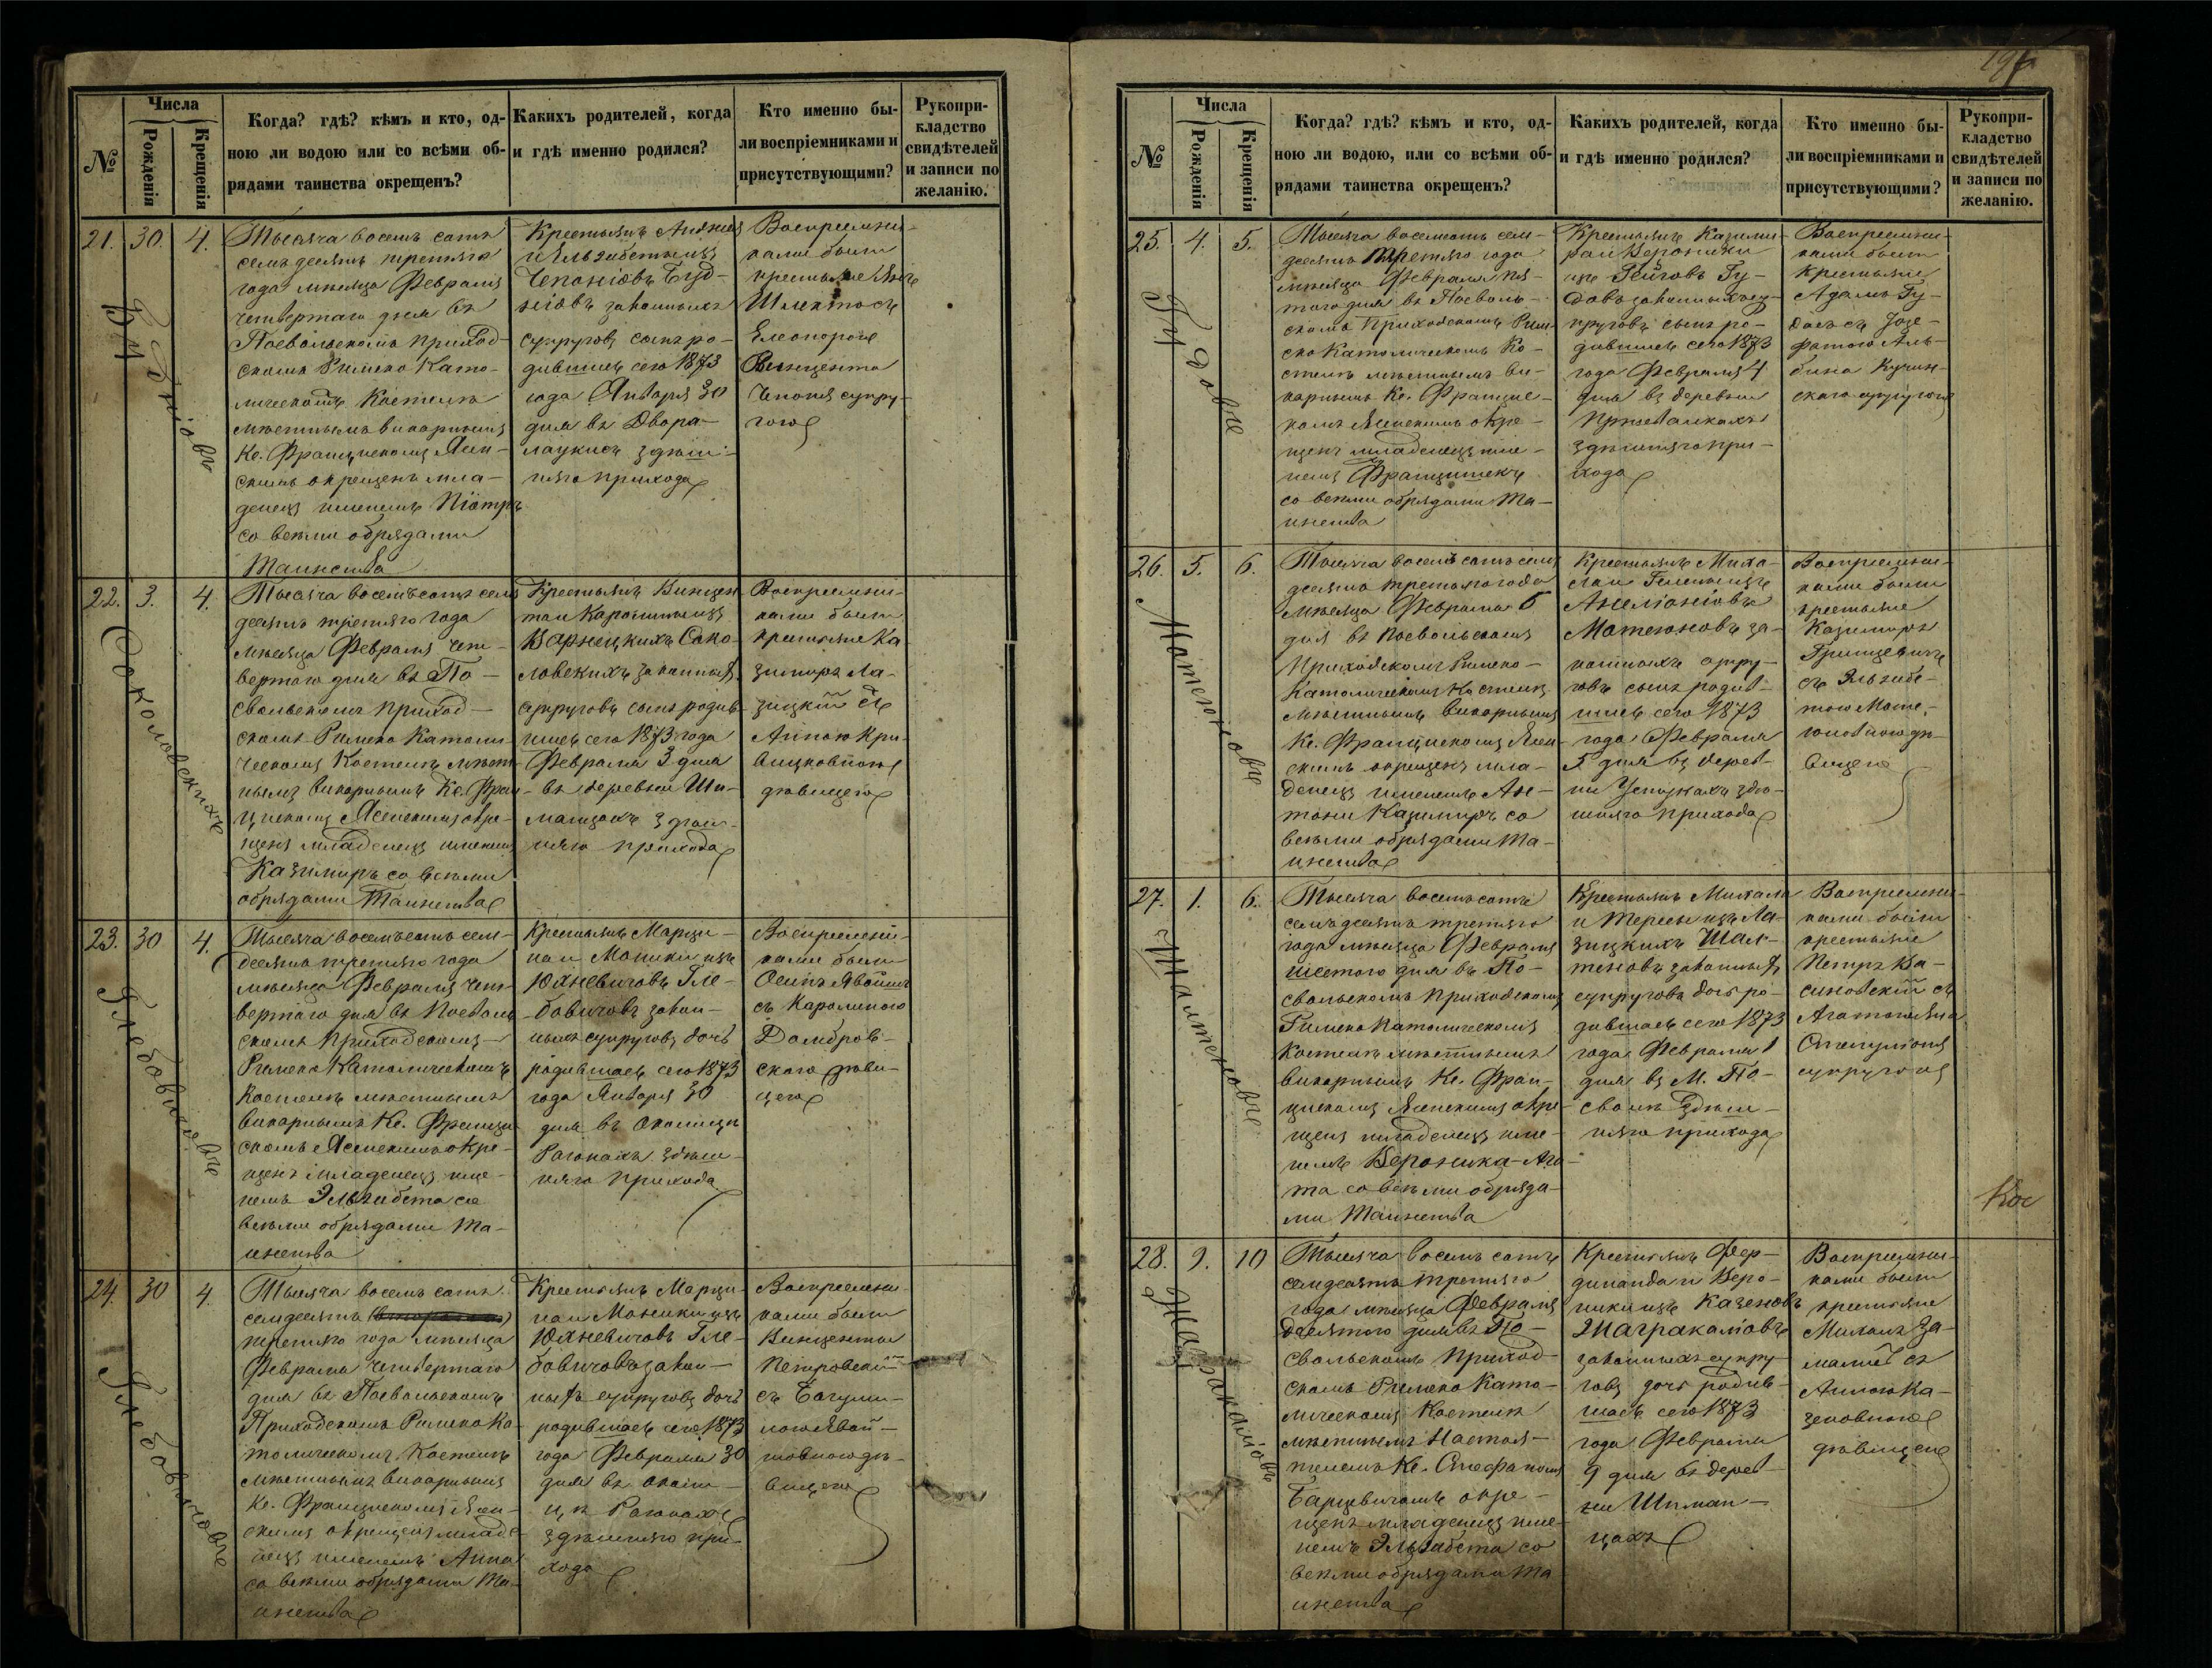 196
№
Числа
Рожденія
Крещенія
Когда? гдѣ? кѣмъ и кто, од-
ною ли водою или со всѣми об-
рядами таинства окрещенъ?
Какихъ родителей, когда
и гдѣ именно родился?
Кто именно бы-
ли воспріемниками и
присутствующими?
Рукопри-
кладство
свидѣтелей
и записи по
желанію.
21.
30.
4.
Тысяча восемь сотъ
семьдесятъ третьяго
года мѣсяца Февраля
четвертаго дня въ
Посвольскомъ приход-
скомъ Римско Като-
лическомъ Костелѣ
мѣстнымъ викарнымъ
Кс. Францискомъ Ясен-
скимъ окрещенъ мла-
денецъ именемъ Піотръ
со всѣми обрядами
Таинства
Крестьянъ
и Эльзибеты изъ
Чепонісовъ
законныхъ
супруговъ сынъ ро-
дившійся сего 1873
года Января 30
дня въ Двора-
лаукисъ здѣш-
няго прихода
Воспріемни-
ками были
крестьяне
съ
Елеонорою
Винцента
супру-
гою
22.
3.
4.
Соколовскихъ
Тысяча восемьсотъ семь
десятъ третяго года
мѣсяца Февраля чет-
вертаго дня въ По-
свольскомъ приход-
скомъ Римско Католи-
ческомъ Костелѣ мѣст-
нымъ викарнымъ Кс. Фран-
цискомъ Ясенскимъ окре-
щенъ младенецъ именемъ
Казимиръ со всѣми
обрядами Таинства
Крестьянъ Винцен
та и Каролины изъ
Варнецкихъ Соко-
ловскихъ законныхъ
супруговъ сынъ родив-
шійся сего 1873 года
Февраля 3 дня
въ деревни Ши-
манцахъ здѣш-
няго прихода
Воспріемни-
ками были
крестьяне Ка
зимиръ Ла-
зицкій съ
Анною Кри-
вицковною
дѣвицею
23.
30
4.
Глебовичовъ
Тысяча восемьсотъ сем-
десятъ третяго года
мѣсяца Февраля чет-
вертаго дня въ Посволь
скомъ приходскомъ
Римско Католическомъ
Костелѣ мѣстнымъ
викарнымъ Кс. Францис
скомъ Ясенскимъ окре-
щенъ младенецъ име-
немъ Эльзибета со
всѣми обрядами Та-
инства
Крестьянъ Марци-
на и Моники изъ
Юхневичовъ Гле-
бовичовъ закон-
ныхъ супруговъ дочь
родившаясь сего 1873
года Января 30
дня въ Околицѣ
Рагонахъ здѣш-
няго прихода
Воспріемни-
ками были
Осипъ
съ Каролиною
Домбров-
скаго дѣви-
цею
24.
30
4.
Глебовичовъ
Тысяча восемь сотъ
семдесятъ (втораго)
третяго года мѣсяца
Февраля четвертаго
дня въ Посвольскомъ
Приходскомъ Римско Ка
толическомъ Костелѣ
мѣстнымъ викарнымъ
Кс. Францискомъ Ясен-
скимъ окрещенъ младе-
нецъ именемъ Анна
со всѣми обрядами Та-
инства
Крестьянъ Марци-
на и Моники изъ
Юхневичовъ Гле-
бовичовъ закон-
ныхъ супруговъ дочь
родившаясь сего 1873
года Февраля 30
дня въ околи-
цѣ Рагонахъ
здѣшняго при-
хода
Воспріемни-
ками были
Винцентій
Петровскій
съ
дѣ-
вицею
№
Числа
Рожденія
Крещенія
Когда? гдѣ? кѣмъ и кто, од-
ною ли водою, или со всѣми об-
рядами таинства окрещенъ?
Какихъ родителей, когда
и гдѣ именно родился?
Кто именно бы-
ли воспріемниками и
присутствующими?
Рукопри-
кладство
свидѣтелей
и записи по
желанію.
25.
4.
5.
Гудовъ
Тысяча восемсотъ сем-
десятъ третяго года
мѣсяца Февраля пя-
таго дня въ Посволь-
скомъ Приходскомъ Рим-
ско Католическомъ Ко-
стелѣ мѣстнымъ ви-
карнымъ Кс. Францис-
комъ Ясенскимъ окре-
щенъ младенецъ име-
немъ Францишекъ
со всѣми обрядами Та-
инства
Крестьянъ Казими-
ра и Вероники
изъ Гейговъ Гу-
довъ законныхъ су-
пруговъ сынъ ро-
дившійся сего 1873
года Февраля 4
дня въ деревни
здѣшняго при-
хода
Воспріемни-
ками были
крестьяне
Адамъ Гу-
съ Юзе-
фатою Аль-
бина
скаго супругою
26.
5.
6.
Матеюновъ
Тысяча восемь сотъ семь
десятъ третьяго года
мѣсяца Февраля 6
дня въ Посвольскомъ
Приходскомъ Римско-
Католическомъ Костелѣ
мѣстнымъ викарнымъ
Кс. Францискомъ Ясен-
скимъ окрещенъ мла-
денецъ именемъ Ан-
тони Казимиръ со
всѣми обрядами Та-
инства
Крестьянъ Миха-
ла и Гелены изъ
Матеюновъ за-
конныхъ супру-
говъ сынъ родив-
шійся сего 1873
года Февраля
5 дня въ дерев-
ни здѣ-
шняго прихода
Воспріемни-
ками были
крестьяне
Казимиръ
Грищевичъ
съ Эльзибе-
тою Мате-
юновною дѣ-
вицею
27.
1.
6.
Шалтеновъ
Тысяча восемь сотъ
семьдесятъ третяго
года мѣсяца Февраля
шестого дня въ По-
свольскомъ Приходскомъ
Римско Католическомъ
Костелѣ мѣстнымъ
викарнымъ Кс. Фран-
цискомъ Ясенскимъ окре-
щенъ младенецъ име-
немъ Вероника-Ага-
та со всѣми обряда-
ми Таинства
Крестьянъ Михала
и Тересы изъ Ла-
зицкихъ Шал-
теновъ законныхъ
супруговъ дочь ро-
дившаясь сего 1873
года Февраля 1
дня въ М. По-
сволѣ здѣш-
няго прихода
Воспріемни-
ками были
крестьяне
Петръ Ва-
синовскій съ
Агатою
супругою
Кос
28.
9.
10
Тысяча восемь сотъ
семдесятъ третяго
года мѣсяца Февраля
десятого дня въ По-
свольскомъ Приход-
скомъ Римско Като-
лическомъ Костелѣ
мѣстнымъ Настоя-
телемъ Кс. Стефаномъ
Барцевичомъ окре-
щенъ младенецъ име-
немъ Эльзибета со
всѣми обрядами Та
инства
Крестьянъ Фер-
динанда и Веро-
ники изъ Казеновъ
законныхъ супру-
говъ дочь родив-
шаясь сего 1873
года Февраля
9 дня въ дерев-
ни Шиман-
цахъ
Воспріемни-
ками были
крестьяне
съ
Анною Ка-
зеновною
дѣвицею